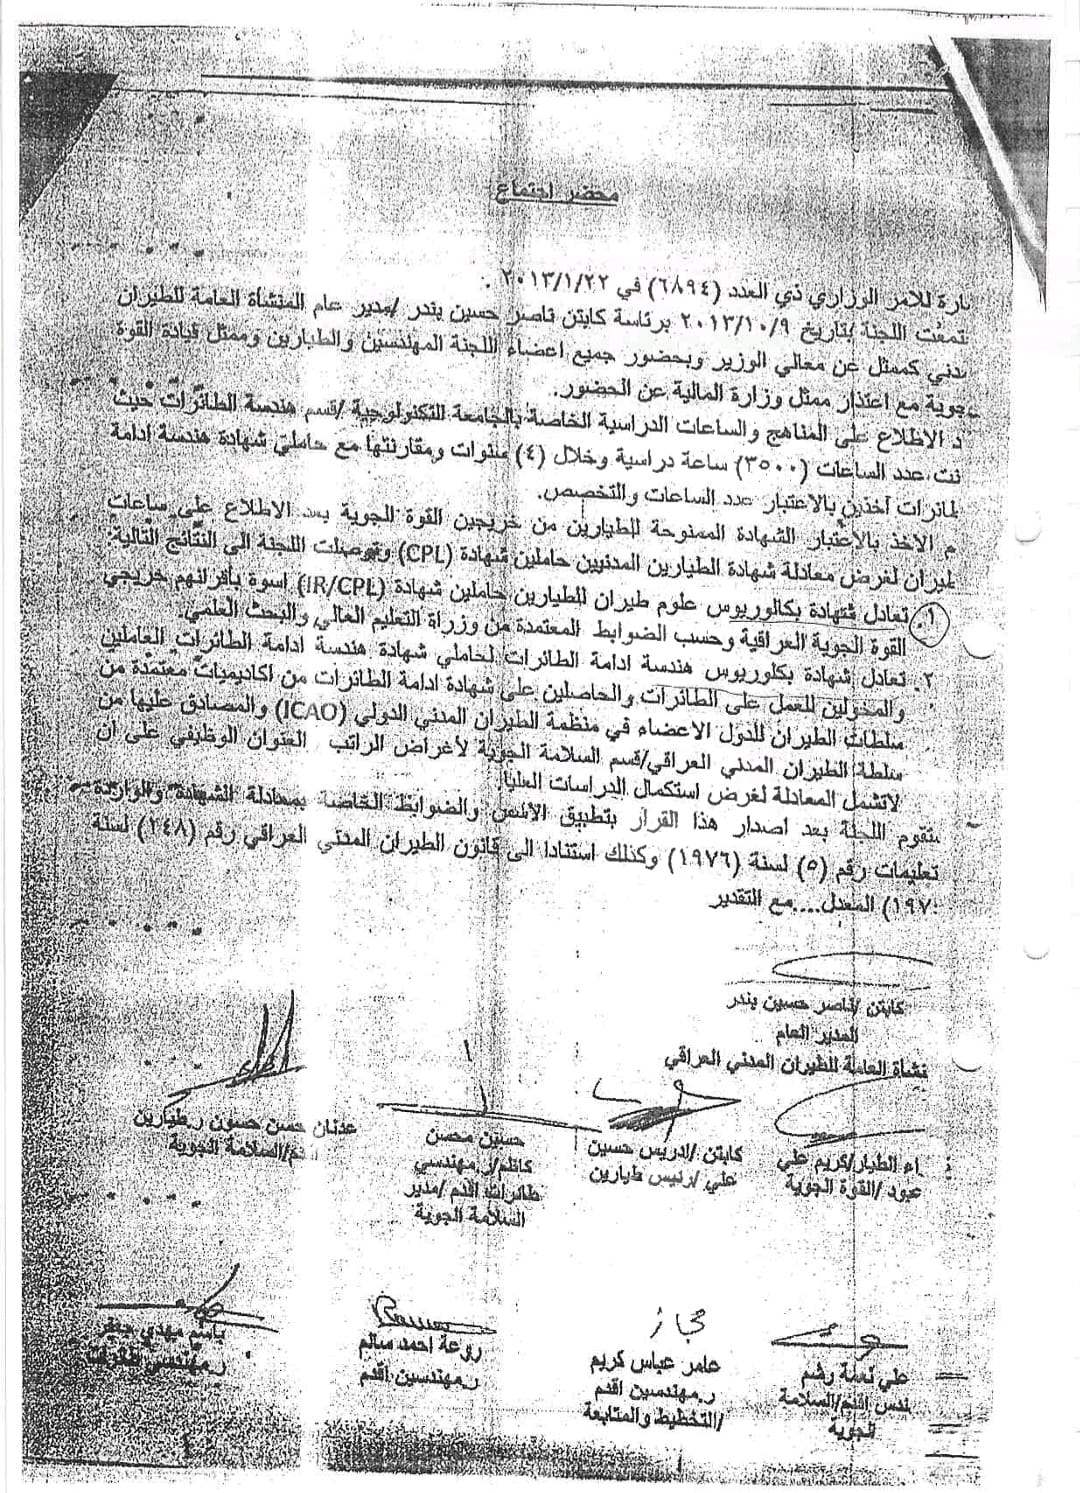 محضر اجتماع
ارة للامر الوزاري ذي العدد (٦٨٩٤) في ٢٠١٣/١/٢٢ .
تمعت اللجنة بتاريخ ٢٠١٣/١٠/٩ برئاسة كابتن ناصر حسين بندر /مدير عام المنشأة العامة للطيران
دني كممثل عن معالي الوزير وبحضور جميع اعضاء اللجنة المهندسين والطيارين وممثل قيادة القوة
جوية مع اعتذار ممثل وزارة المالية عن الحضور.
د الاطلاع على المناهج والساعات الدراسية الخاصة بالجامعة التكنولوجية /قسم هندسة الطائرات حيث
نت عدد الساعات (٣٥٠٠) ساعة دراسية وخلال (٤) سنوات ومقارنتها مع حاملي شهادة هندسة ادامة
لطائرات آخذين بالاعتبار عدد الساعات والتخصص.
م الاخذ بالاعتبار الشهادة الممنوحة للطيارين من خريجين القوة الجوية بعد الاطلاع على ساعات
طيران لغرض معادلة شهادة الطيارين المدنيين حاملين شهادة (CPL) وتوصلت اللجنة الى النتائج التالية:
١. تعادل شهادة بكالوريوس علوم طيران للطيارين حاملين شهادة (IR/CPL) اسوة بأقرانهم خريجي
القوة الجوية العراقية وحسب الضوابط المعتمدة من وزراة التعليم العالي والبحث العلمي.
٢. تعادل شهادة بكلوريوس هندسة ادامة الطائرات لحاملي شهادة هندسة ادامة الطائرات العاملين
والمخولين للعمل على الطائرات والحاصلين على شهادة ادامة الطائرات من اكاديميات معتمدة من
سلطات الطيران للدول الاعضاء في منظمة الطيران المدني الدولي (ICAO) والمصادق عليها من
سلطة الطيران المدني العراقي/قسم السلامة الجوية لأغراض الراتب العنوان الوظيفي على ان
لاتشمل المعادلة لغرض استكمال الدراسات العليا.
ستقوم اللجنة بعد اصدار هذا القرار بتطبيق الأسس والضوابط الخاصة بمعادلة الشهادة والواردة
تعليمات رقم (٥) لسنة (١٩٧٦) وكذلك استنادا الى قانون الطيران المدني العراقي رقم (١٤٨) لسنة
١٩٧) المعدل....مع التقدير
كابتن /ناصر حسين بندر
المدير العام
نشأة العامة للطيران المدني العراقي
اء الطيار/كريم علي
عبود /القوة الجوية
كابتن /ادريس حسين
علي /رئيس طيارين
حسين محسن
كاظم/ر.مهندسي
طائرات اقدم /مدير
السلامة الجوية
عدنان حسن حسون ر.طيارين
/السلامة الجوية
علي نعمة رشم
ندس اقدم/السلامة
الجوية
مجاز
عامر عباس كريم
ر.مهندسين اقدم
/التخطيط والمتابعة
روعة احمد سالم
ر.مهندسين اقدم
باسم مهدي جعفر
ر.مهندسي طائرات